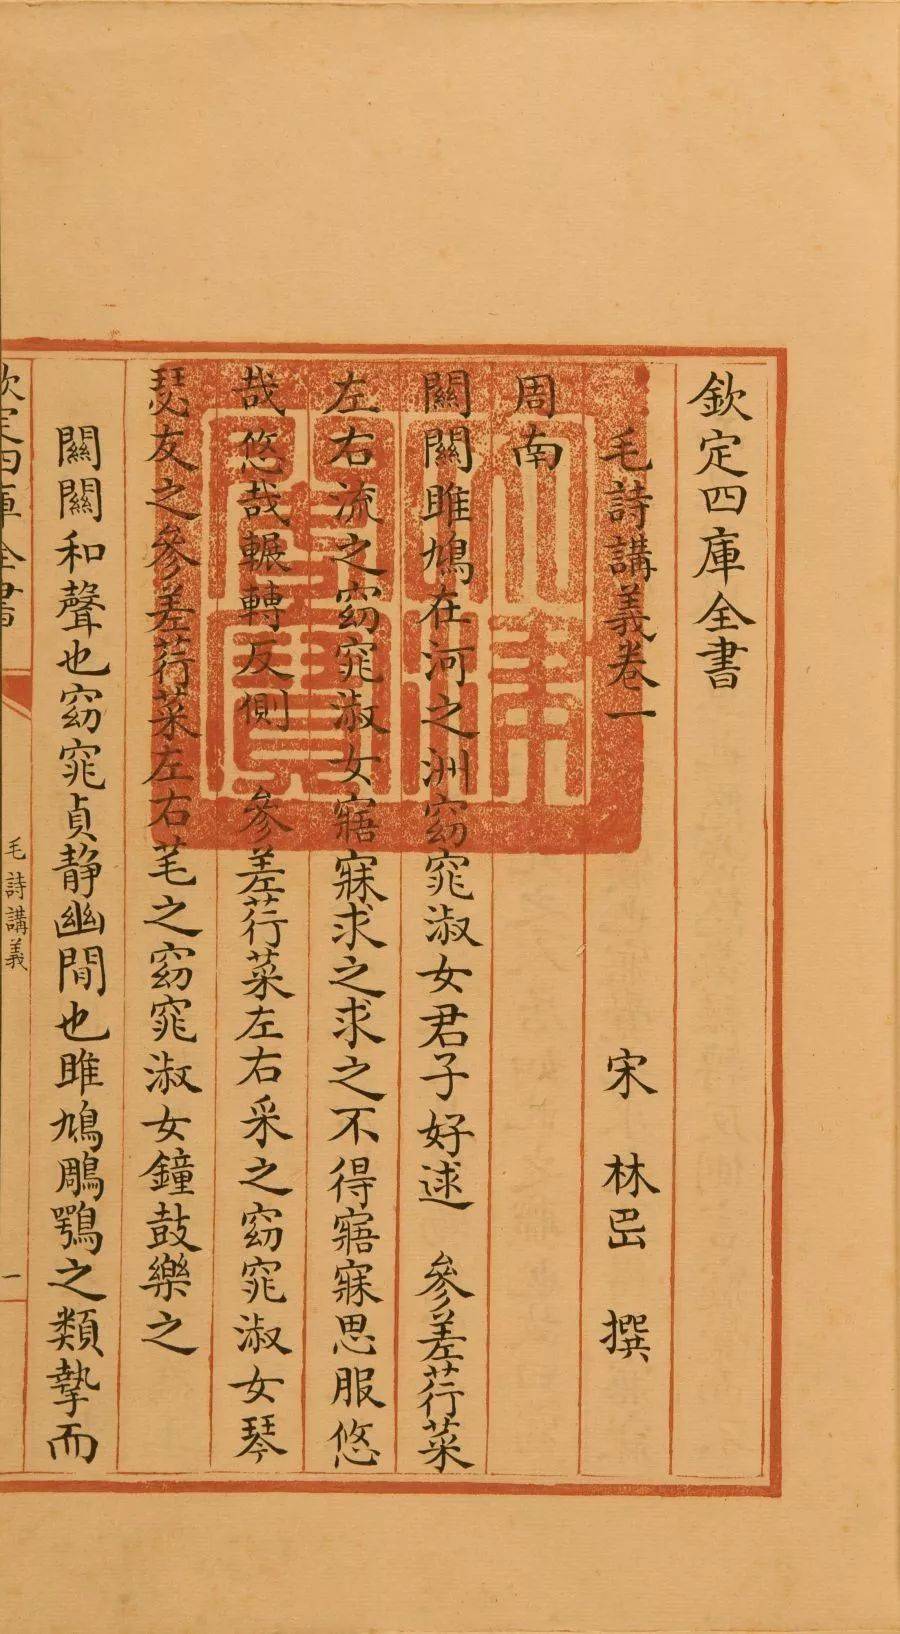 欽定四庫全書
毛詩講義卷一
宋 林岊 撰
周南
關關雎鳩在河之洲窈窕淑女君子好逑 參差荇菜
左右流之窈窕淑女寤寐求之求之不得寤寐思服悠
哉悠哉輾轉反側 參差荇菜左右采之窈窕淑女琴
瑟友之參差荇菜左右芼之窈窕淑女鐘鼓樂之
關關和聲也窈窕貞静幽閒也雎鳩鵰鶚之類摯而
欽定四庫全書
毛詩講義
一